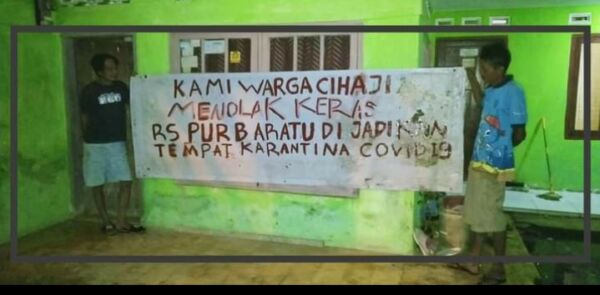 KAMI WARGA CIHAJI
MENOLAK KERAS
RS PURBARATU DI JADIKAN
TEMPAT KARANTINA COVID 19